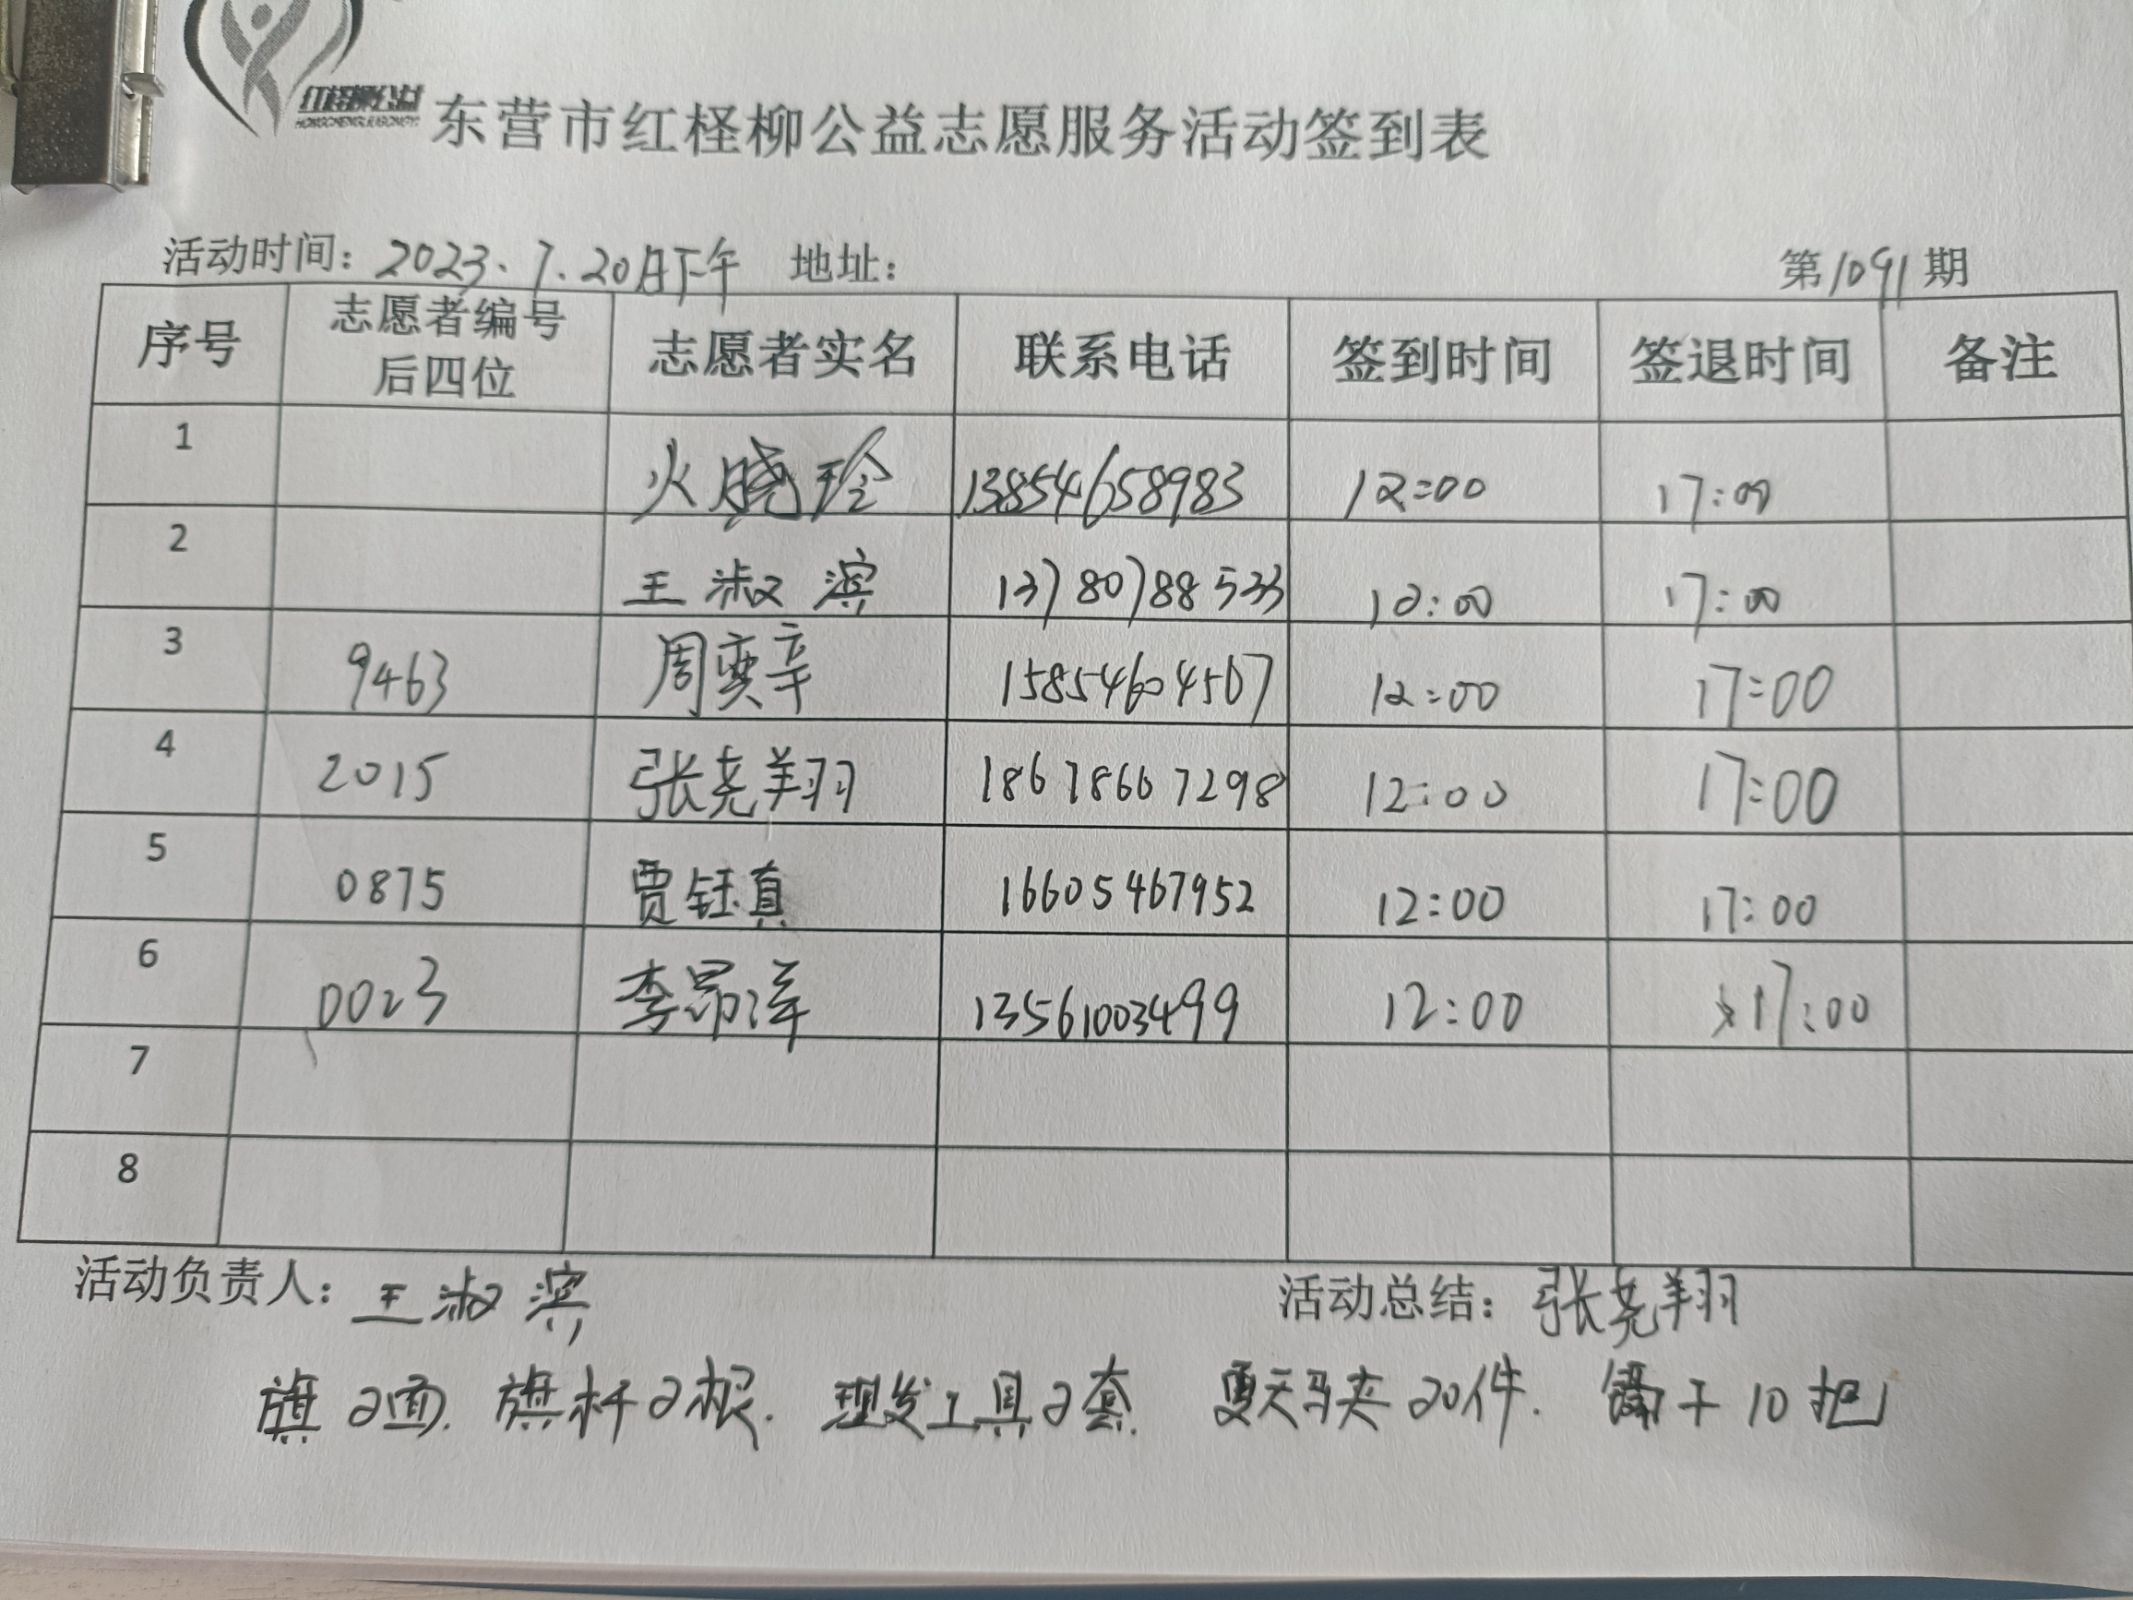 红柽柳公益
HONGCHENGLIUGONGYI
东营市红柽柳公益志愿服务活动签到表
活动时间：2023.7.20日下午 地址： 第1091期
序号 志愿者编号后四位 志愿者实名 联系电话 签到时间 签退时间 备注
1 火晓玲 13854658983 12:00 17:00
2 王淑滨 13780788533 12:00 17:00
3 9463 周奕辛 15854604567 12:00 17:00
4 2015 张尧翔 18678667298 12:00 17:00
5 0875 贾钰真 16605467952 12:00 17:00
6 0023 李昂洋 13561003499 12:00 17:00
7
8
活动负责人：王淑滨 活动总结：张尧翔
旗2面. 旗杆2根. 理发工具2套. 夏天马夹20件. 10把